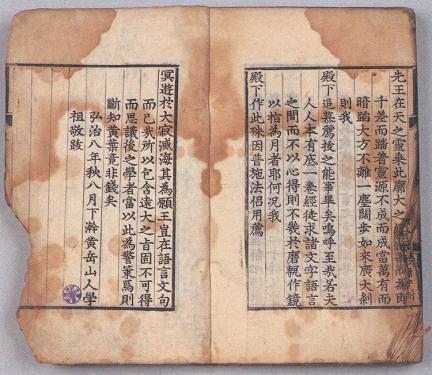 先王在天之靈乘此願大之
千差而踏普靈源不成而成當萬有而
暗蹈大方不離一塵闊步如來廣大刹
則我
殿下追慕薦拔之能事畢矣嗚呼至我若夫
人人本有底一卷經徒求諸文字語言
之間而不以心得則不幾於磨甎作鏡
以指為月者耶何况我
殿下作此殊因普施法侶用薦
冥遊於大寂滅海其為願王豈在語言文句
而已我所以包含遠大之旨固不可得
而思議後之學者當以此為警策焉則
斷知黃葉竟非錢矣
弘治八年秋八月下澣黃岳山人學
祖敬跋